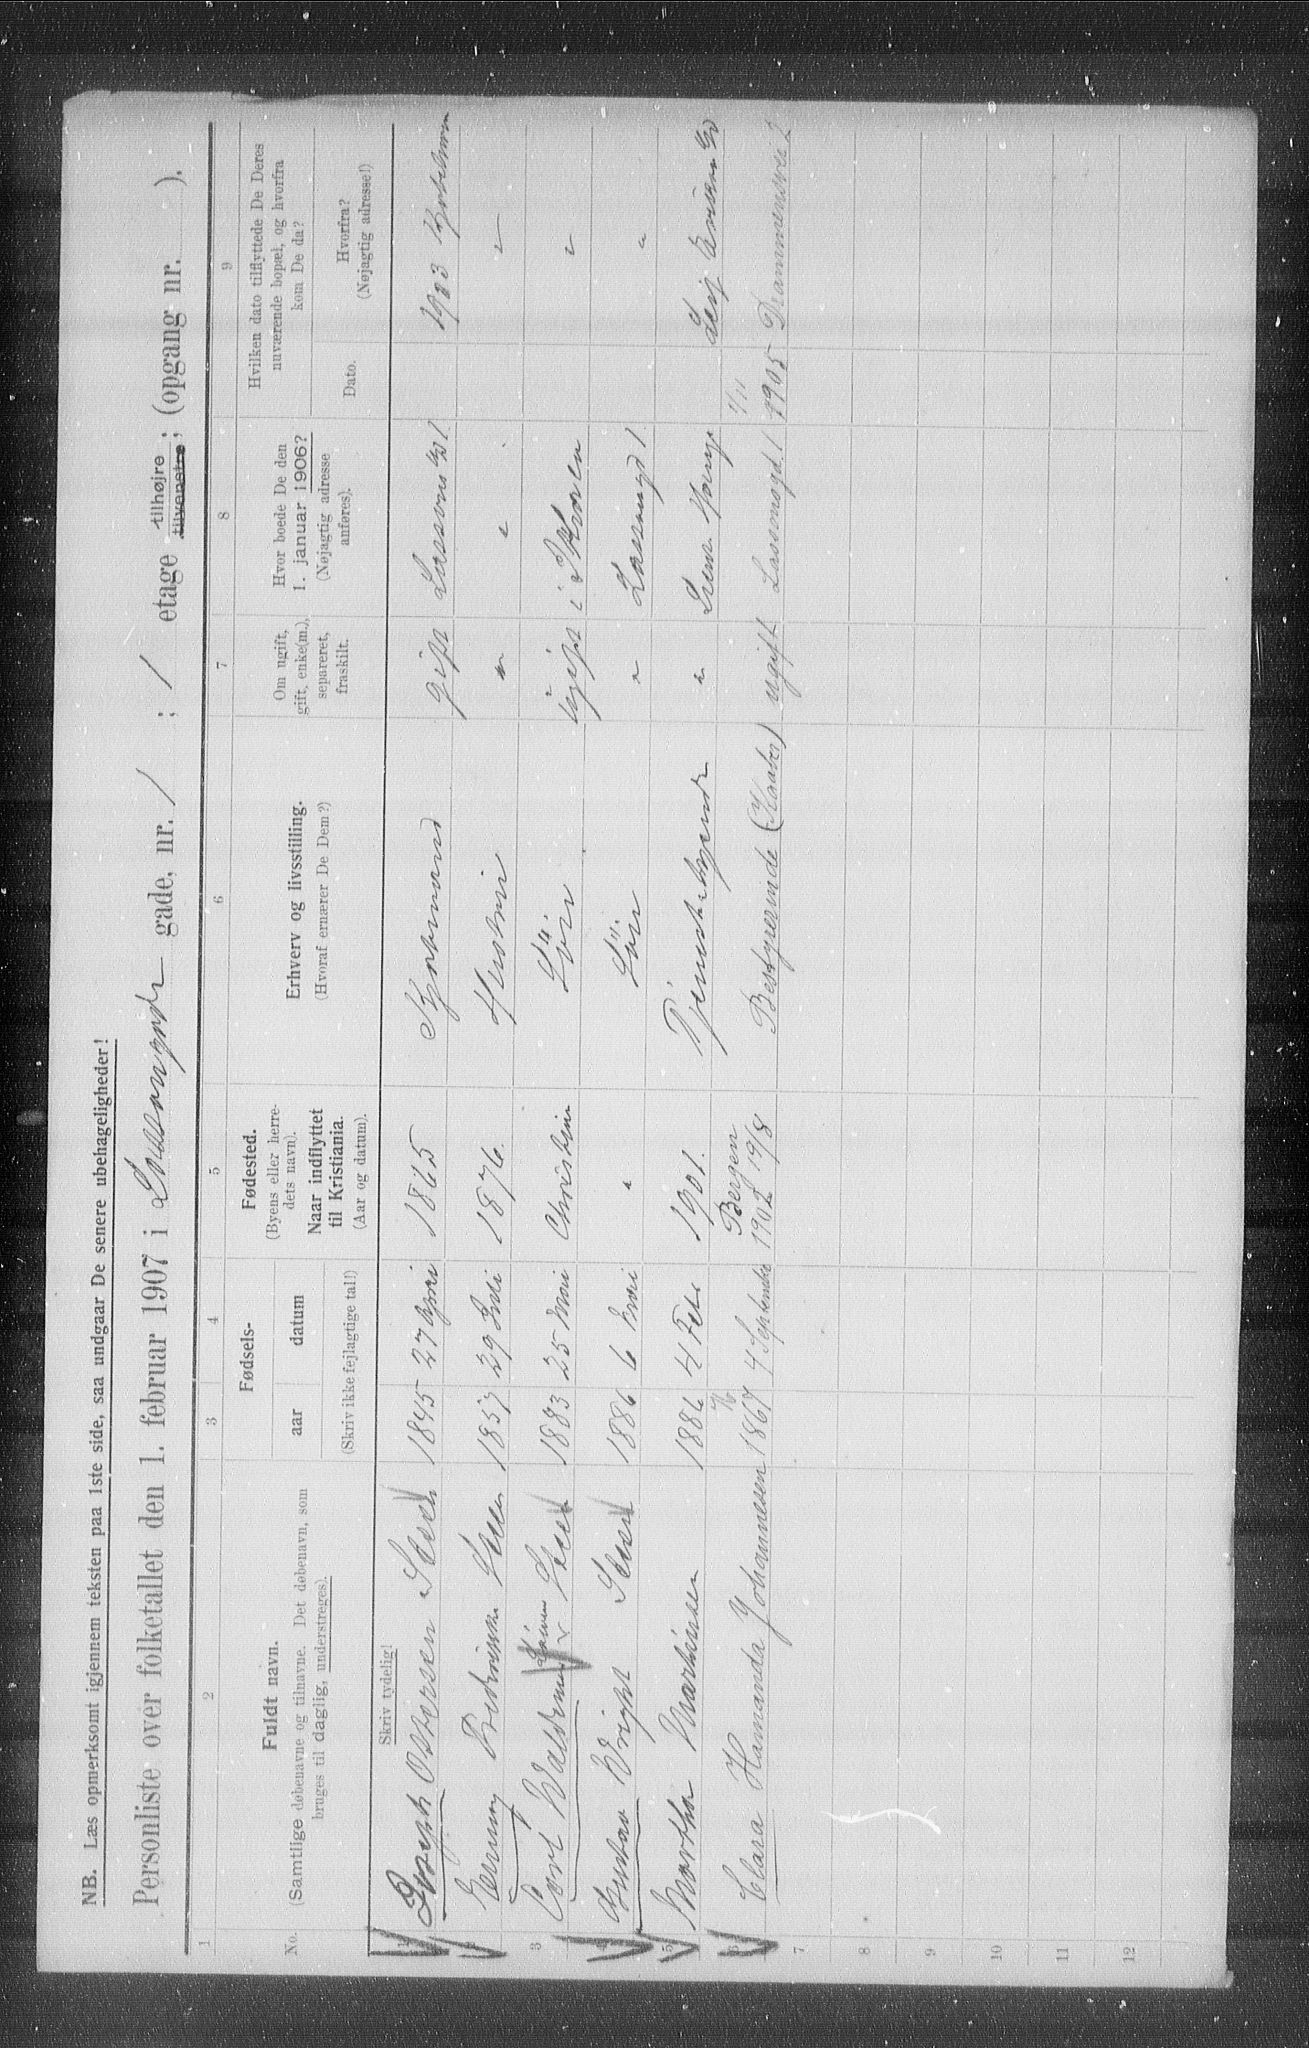 NB. Læs opmerksomt igjennem teksten paa 1ste side, saa undgaar De senere ubehageligheder!
Personliste over folketallet den 1. februar 1907 i Lassonsgade gade, nr. 1 ; 1 etage tilhøjre ; tilvenstre ; (opgang nr. ).
1 2 3 4 5 6 7 8 9
No.
Fuldt navn.
(Samtlige døbenavne og tilnavne. Det døbenavn, som
bruges til daglig, understreges).
Fødsels-
aar datum
(Skriv ikke fejlagtige tal!)
Fødested.
(Byens eller herre-
dets navn).
Naar indflyttet
til Kristiania.
(Aar og datum).
Erhverv og livsstilling.
(Hvoraf ernærer De Dem?)
Om ugift,
gift, enke(m.),
separeret,
fraskilt.
Hvor boede De den
1. januar 1906?
(Nøjagtig adresse
anføres).
Hvilken dato tilflyttede De Deres
nuværende bopæl, og hvorfra
kom De da?
Dato.
Hvorfra?
(Nøjagtig adresse!)
Skriv tydelig!
1 Joseph Ottersen 1845 27 April 1865 Kjøbmand gift Lassons gd 1 1903
2 Fredrikke 1857 29 Juli 1876 Hustru " " "
3 Carl Waldemar 1883 25 Mai Christiania Søn ugift i "
4 Gustav Wright 1886 6 Mai " Søn " Lassonsgd 1 "
5 Martha Mathisen 1886 4 Feb 1901 Tjenestepige "
6 Clara Hamanda Johannesen 1867 4 September Bergen 1902 19/8 Bestyrerinde ugift Lassonsgd. 1 1/11 1905 Drammensvei 2
7
8
9
10
11
12